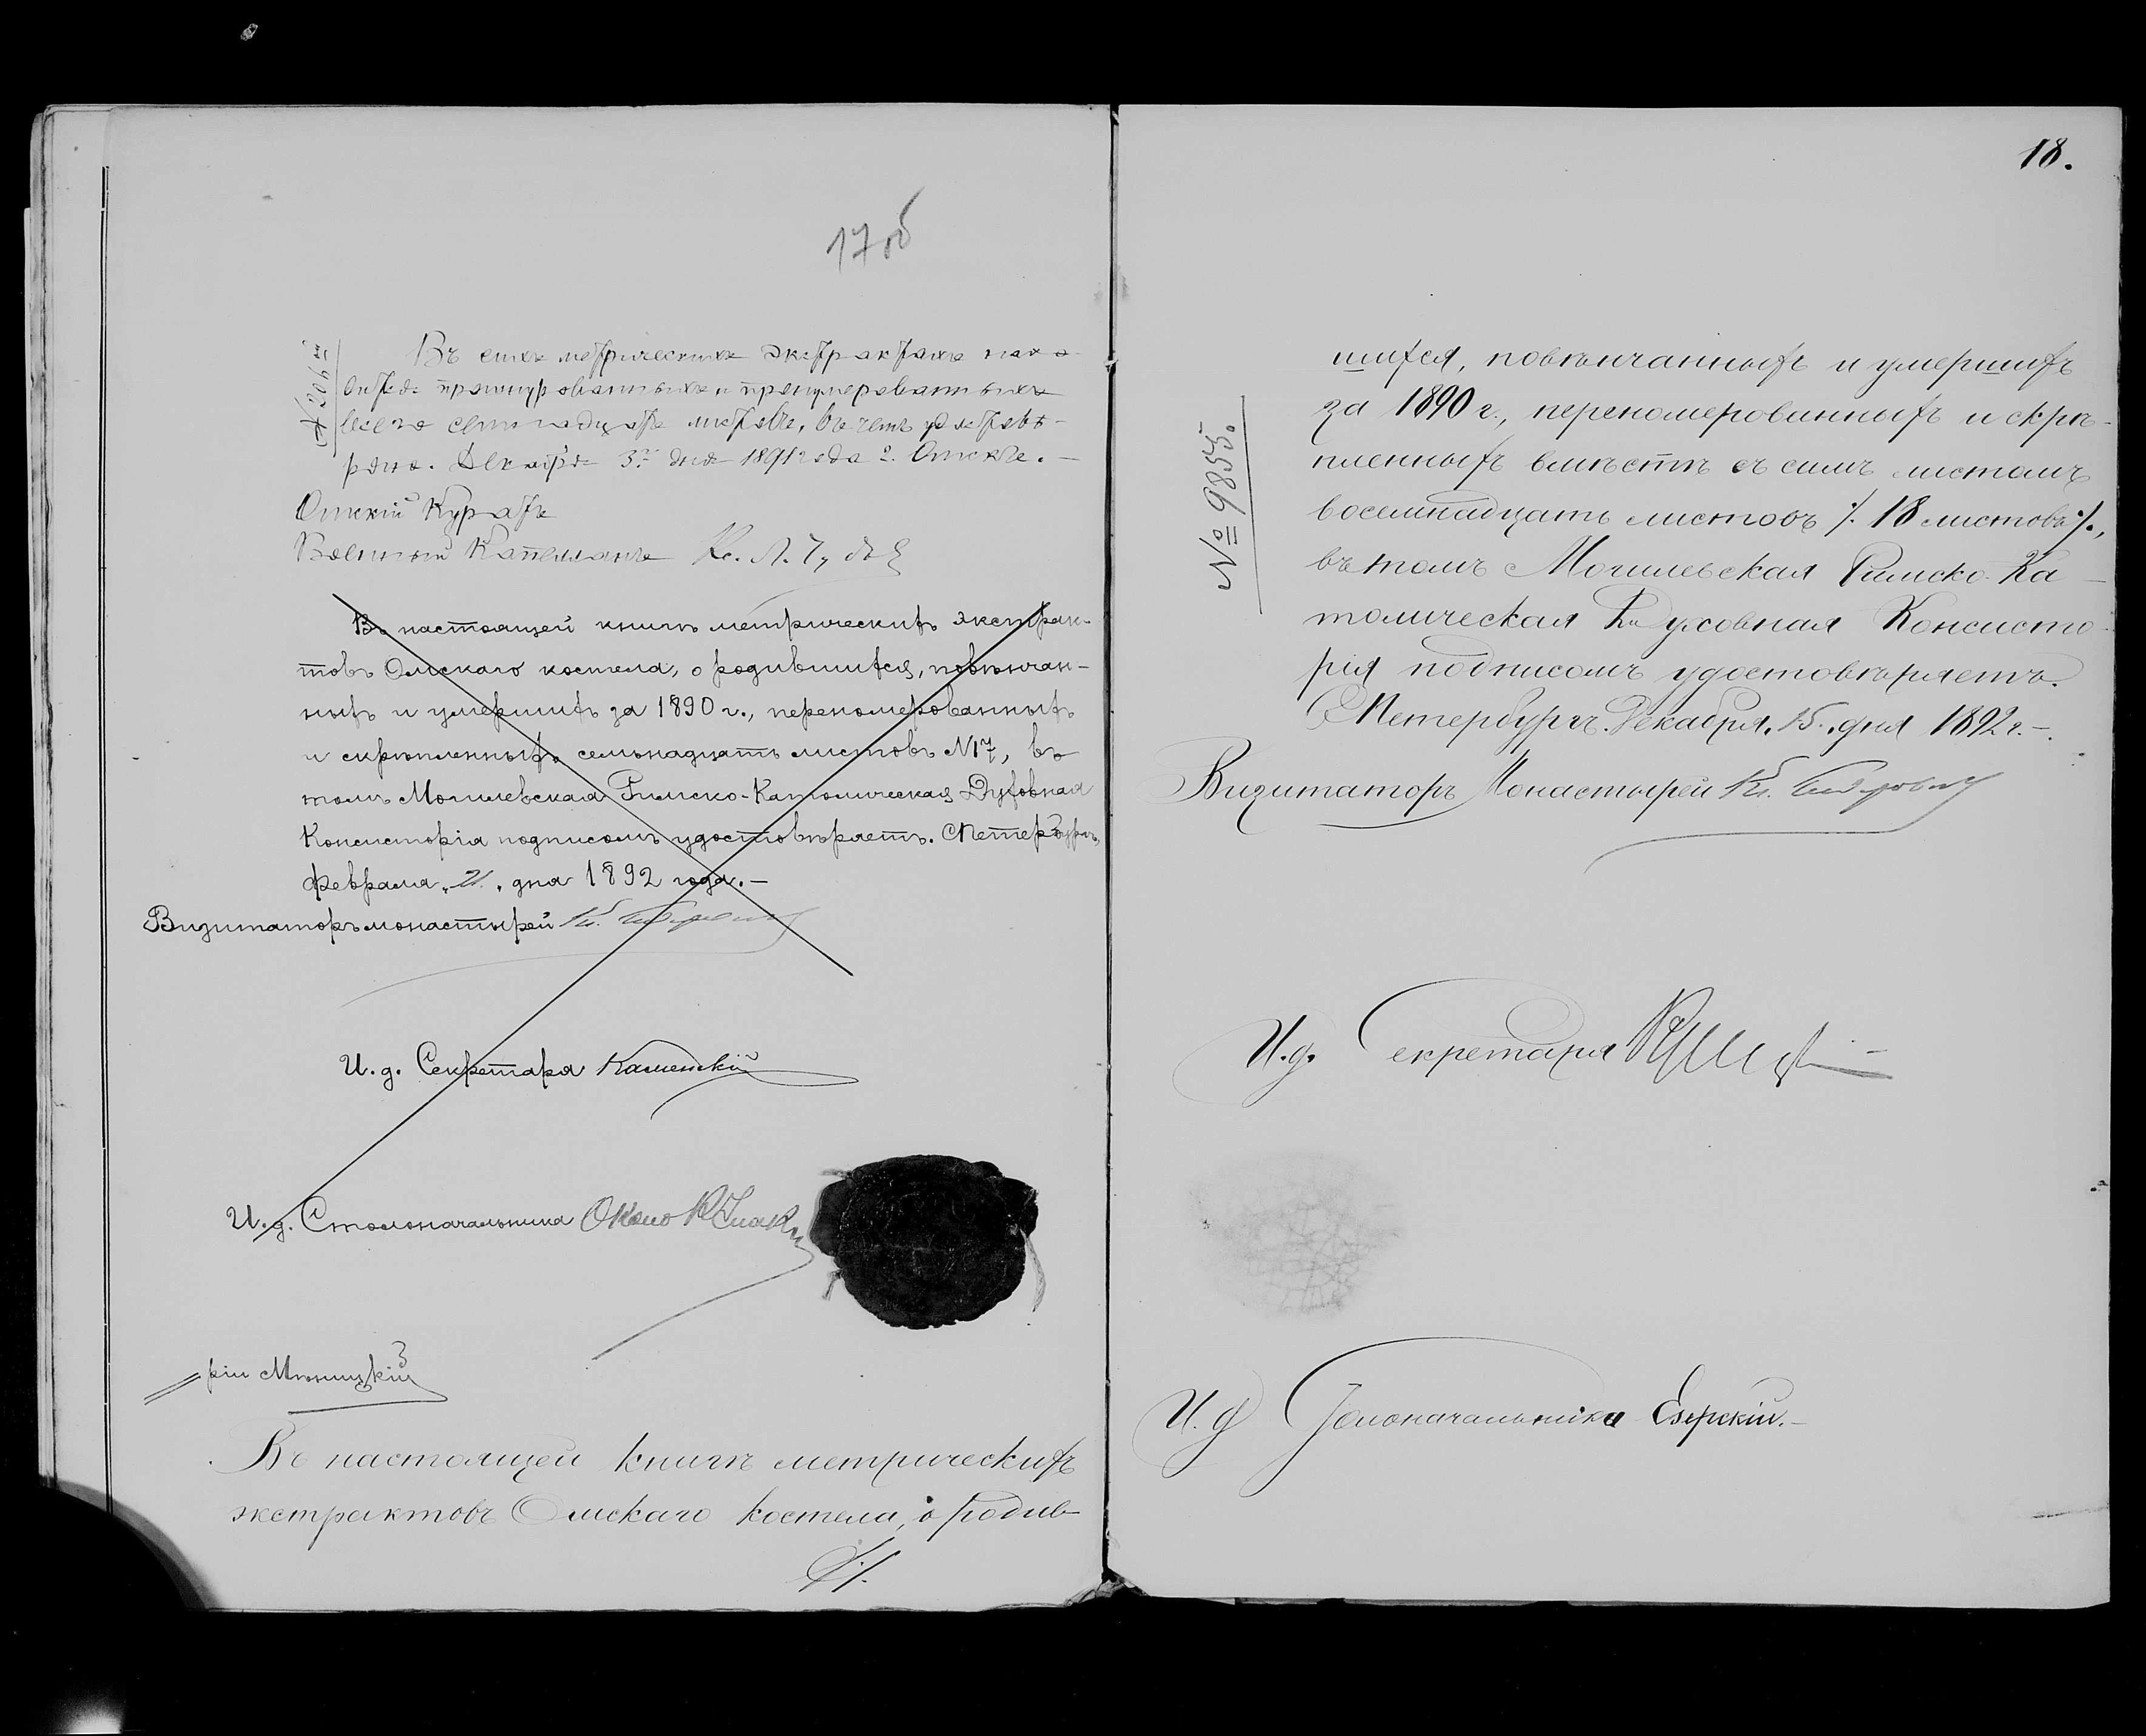 17 об
Въ сихъ метрическихъ экстрактахъ нахо-
дится прошнурованныхъ и пронумерованныхъ
всего семнадцать листовъ, въ чемъ удостовѣ-
ряю. Декабря 3го дня 1891 года г. Омскъ. —
Омскій Куратъ
Военный Капелланъ Кс.
Въ настоящей книгѣ метрическихъ экстрак-
товъ Омскаго костела, о родившихся, повѣнчан-
ныхъ и умершихъ за 1890 г., переномерованныхъ
и скрѣпленныхъ семьнадцать листовъ N17, въ
томъ Могилевская Римско-Католическая Духовная
Консисторія подписомъ удостовѣряетъ. СПетербургъ,
Февраля „21„ дня 1892 года. —
Визитаторъ монастырей Кс.
И. д. Секретаря Каменскій
И. д. Столоначальника
рій
Въ настоящей книгѣ метрическихъ
экстрактовъ Омскаго костела, о родив-
./.
18.
№ 9855.
шихся, повѣнчанныхъ и умершихъ
за 1890 г., переномерованныхъ и скрѣ-
пленныхъ вмѣстѣ съ симъ листомъ
восемнадцать листовъ ./. 18 листовъ ./.,
въ томъ Могилевская Римско-Ка-
толическая Духовная Консисто-
рія подписомъ удостовѣряетъ.
СПетербургъ. Декабря „15„ дня 1892 г. —.
Визитаторъ Монастырей Кс.
И. д. Секретаря
И. д. Столоначальника Езерскій. —